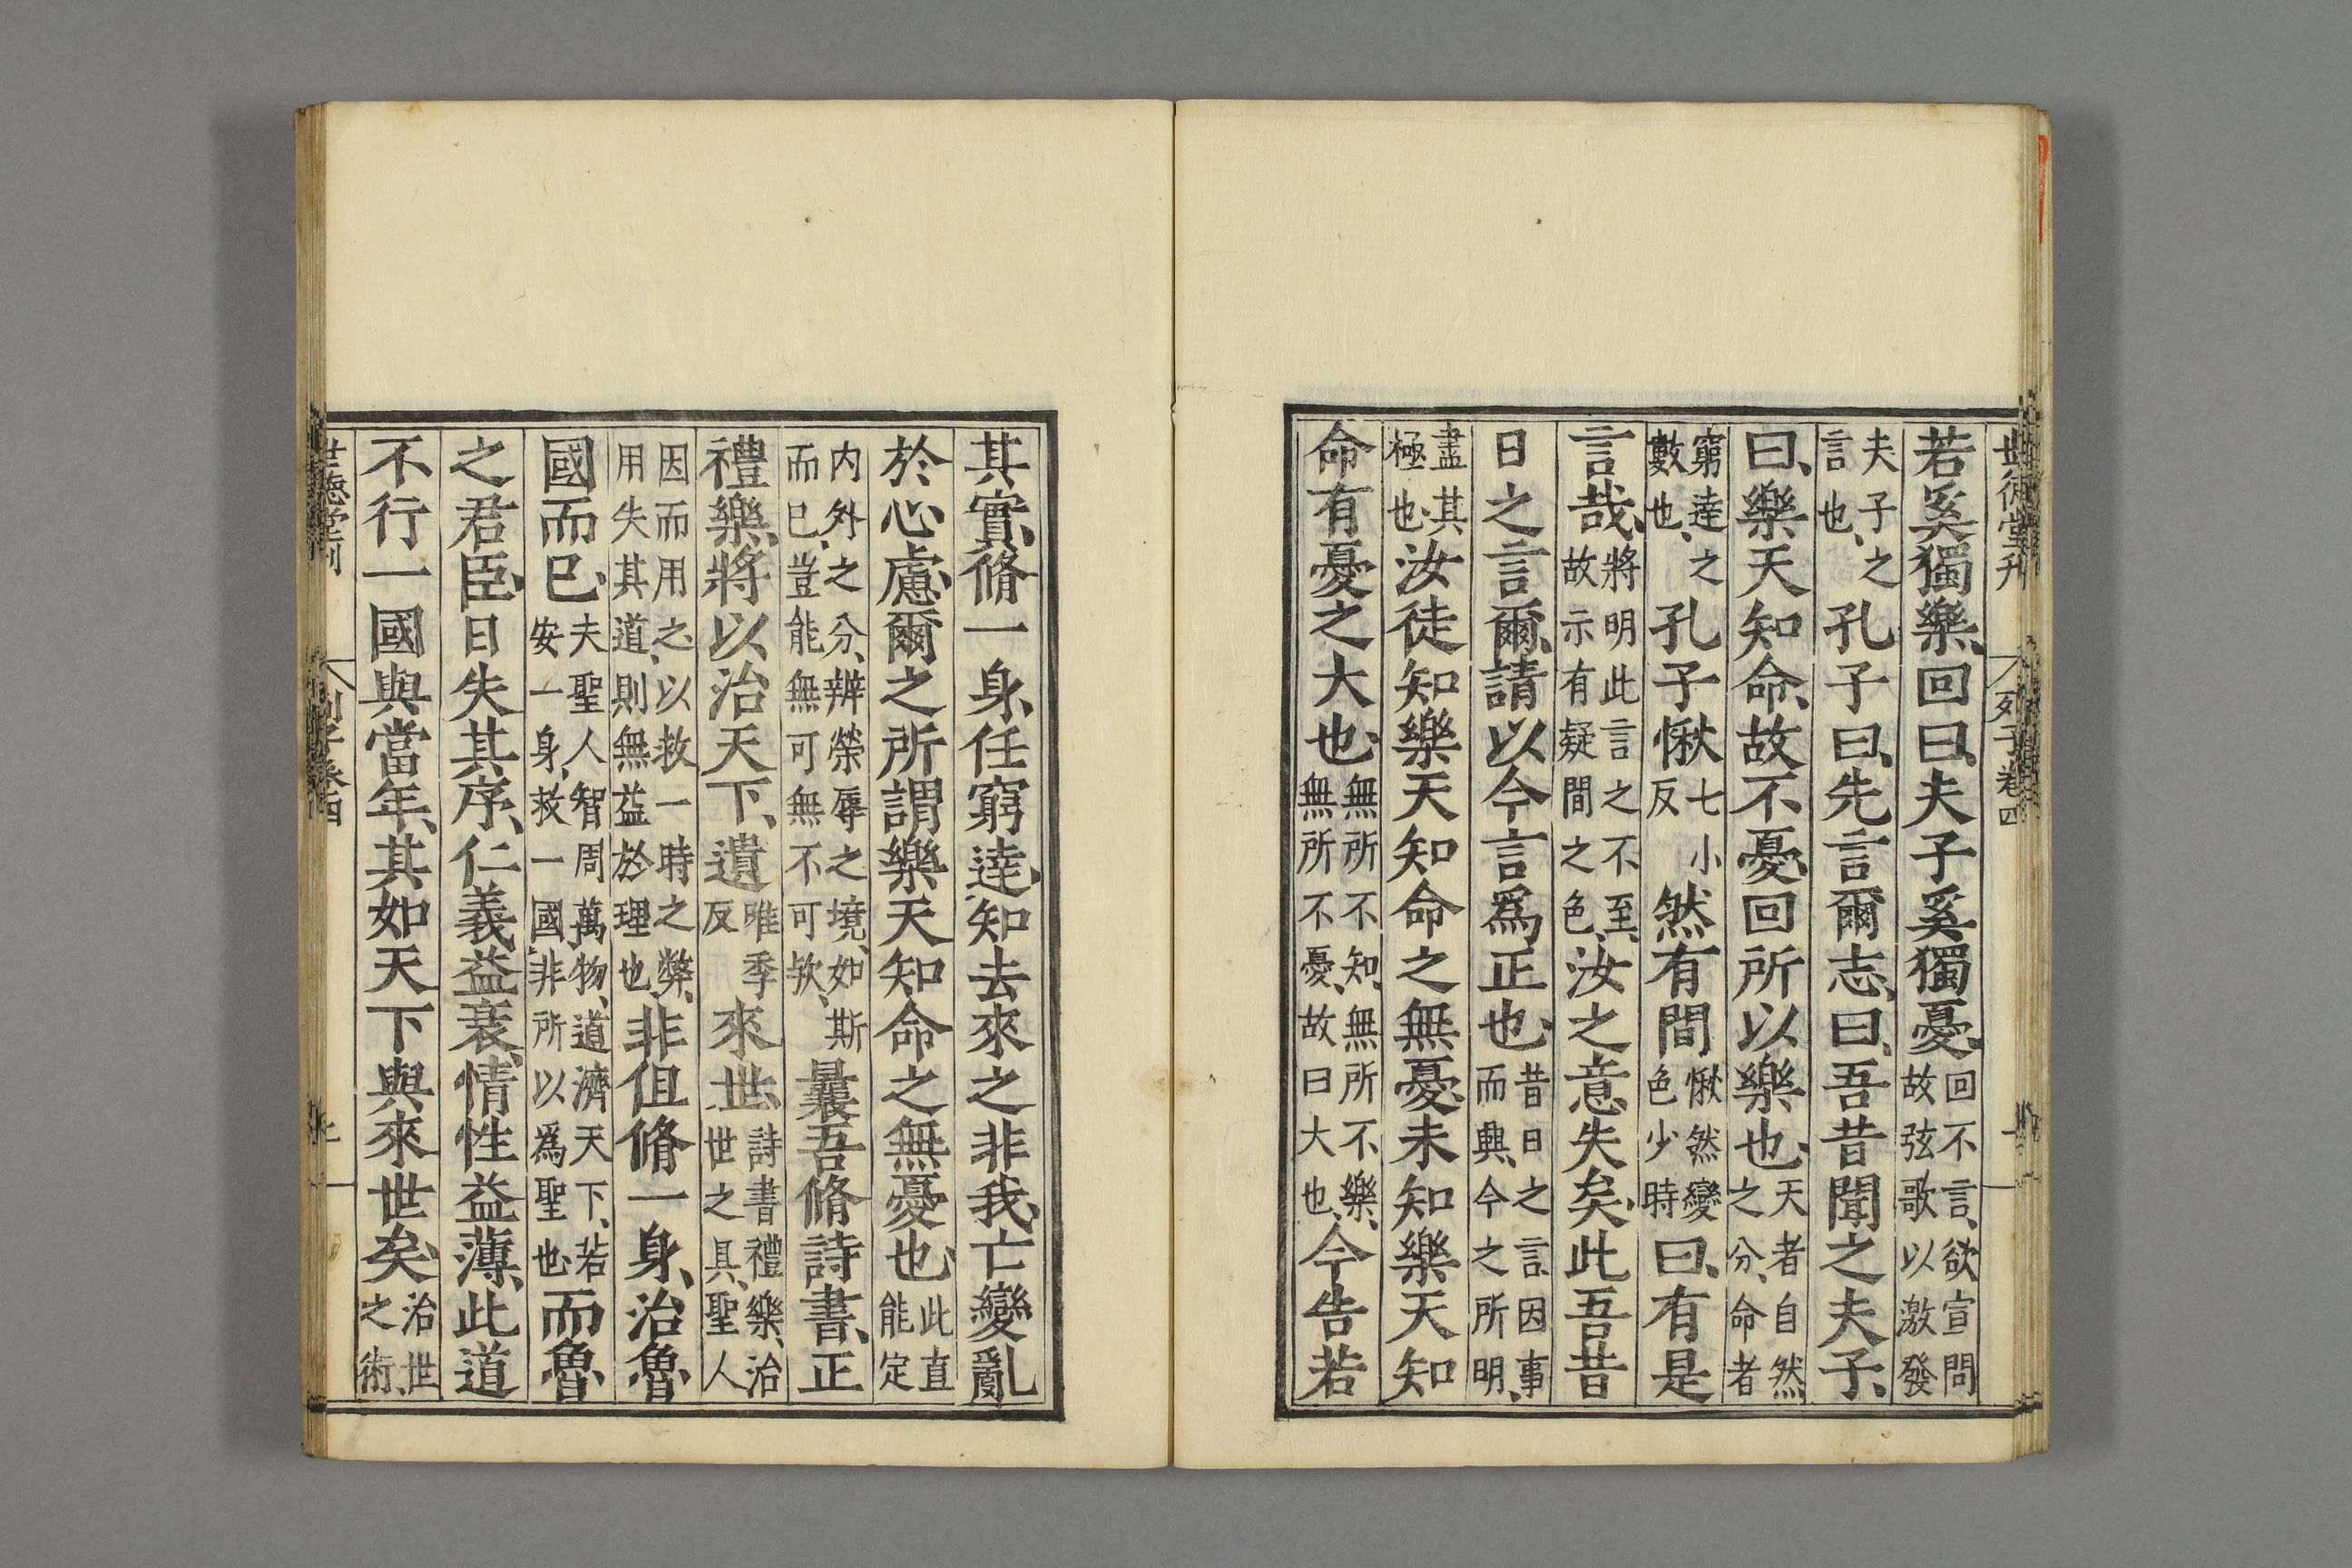 世德堂刊
列子卷四
若奚獨樂、回曰、夫子奚獨憂、回不言、欲宣問故弦歌以激發
夫子之言也、孔子曰、先言爾志、曰、吾昔聞之夫子、
曰、樂天知命、故不憂、回所以樂也、天者自然之分、命者
窮達之數也、孔子愀七小反然有間愀然變色少時曰、有是
言哉、將明此言之不至、故示有疑間之色、汝之意失矣、此吾昔
日之言爾、請以今言爲正也、昔日之言、因事而興、今之所明、
盡其極也、汝徒知樂天知命之無憂、未知樂天知
命有憂之大也、無所不知、無所不樂、無所不憂、故曰大也、今告若
其實、脩一身、任窮達、知去來之非我、亡變亂
於心慮、爾之所謂樂天知命之無憂也、此直能定
内外之分、辯榮辱之境、如斯而已、豈能無可無不可㢤、曩吾脩詩書、正
禮樂、將以治天下、遺唯季反來世、詩書禮樂、治世之具、聖人
因而用之、以救一時之弊、用失其道、則無益於理也、非但脩一身、治魯
國而已、夫聖人智周萬物、道濟天下、若安一身、救一國、非所以爲聖也、而魯
之君臣、日失其序、仁義益衰、情性益薄、此道
不行一國與當年、其如天下與來世矣、治世之術、
世德堂刊
列子卷四